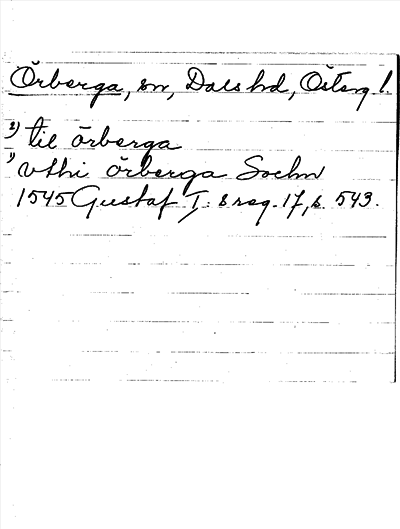 Örberga, sn, Dals hd, Österg l.
2) til örberga
1) vthi örberga Sochn
1545 Gustaf I:s reg. 17, s. 543.